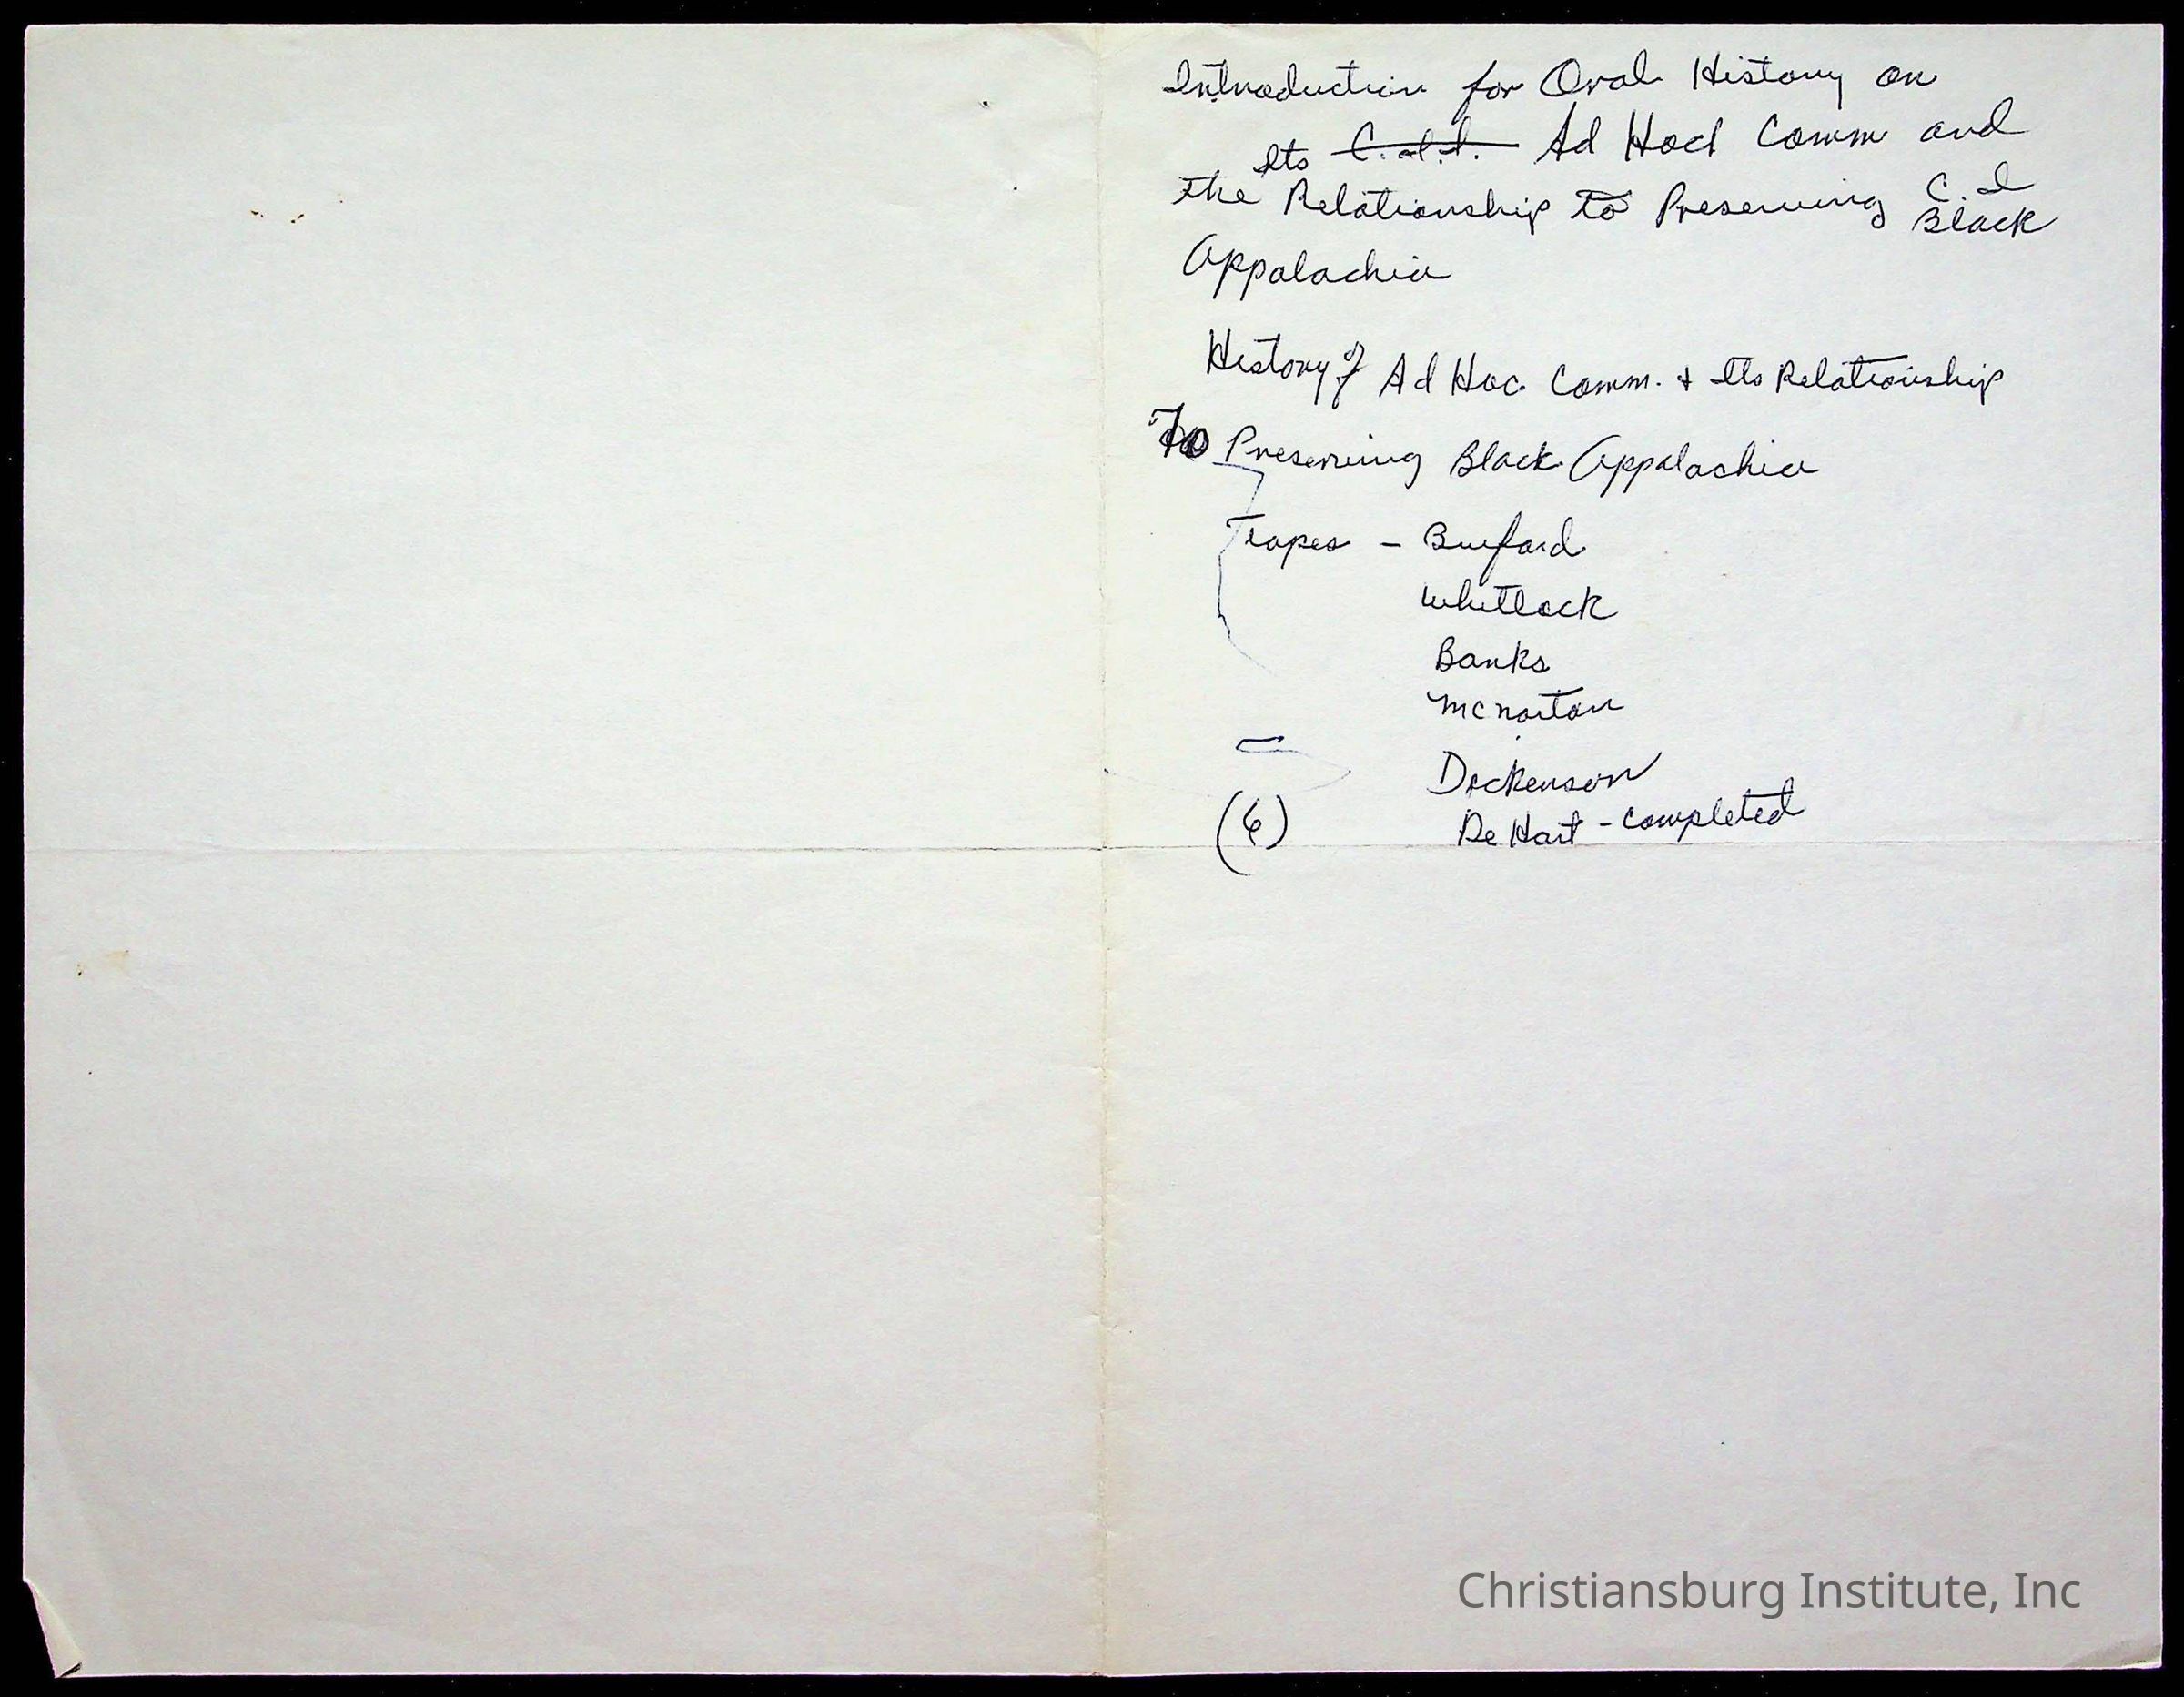 Introduction for Oral History on
Its Ad Hoc Comm and
the Relationship to Preserving C. I
Black
Appalachia
History of Ad Hoc Comm. + Its Relationship
To Preserving Black Appalachia
Tapes - Buford
Whitlock
Banks
McNorton
Dockenson
(6) De Hart - completed
Christiansburg Institute, Inc